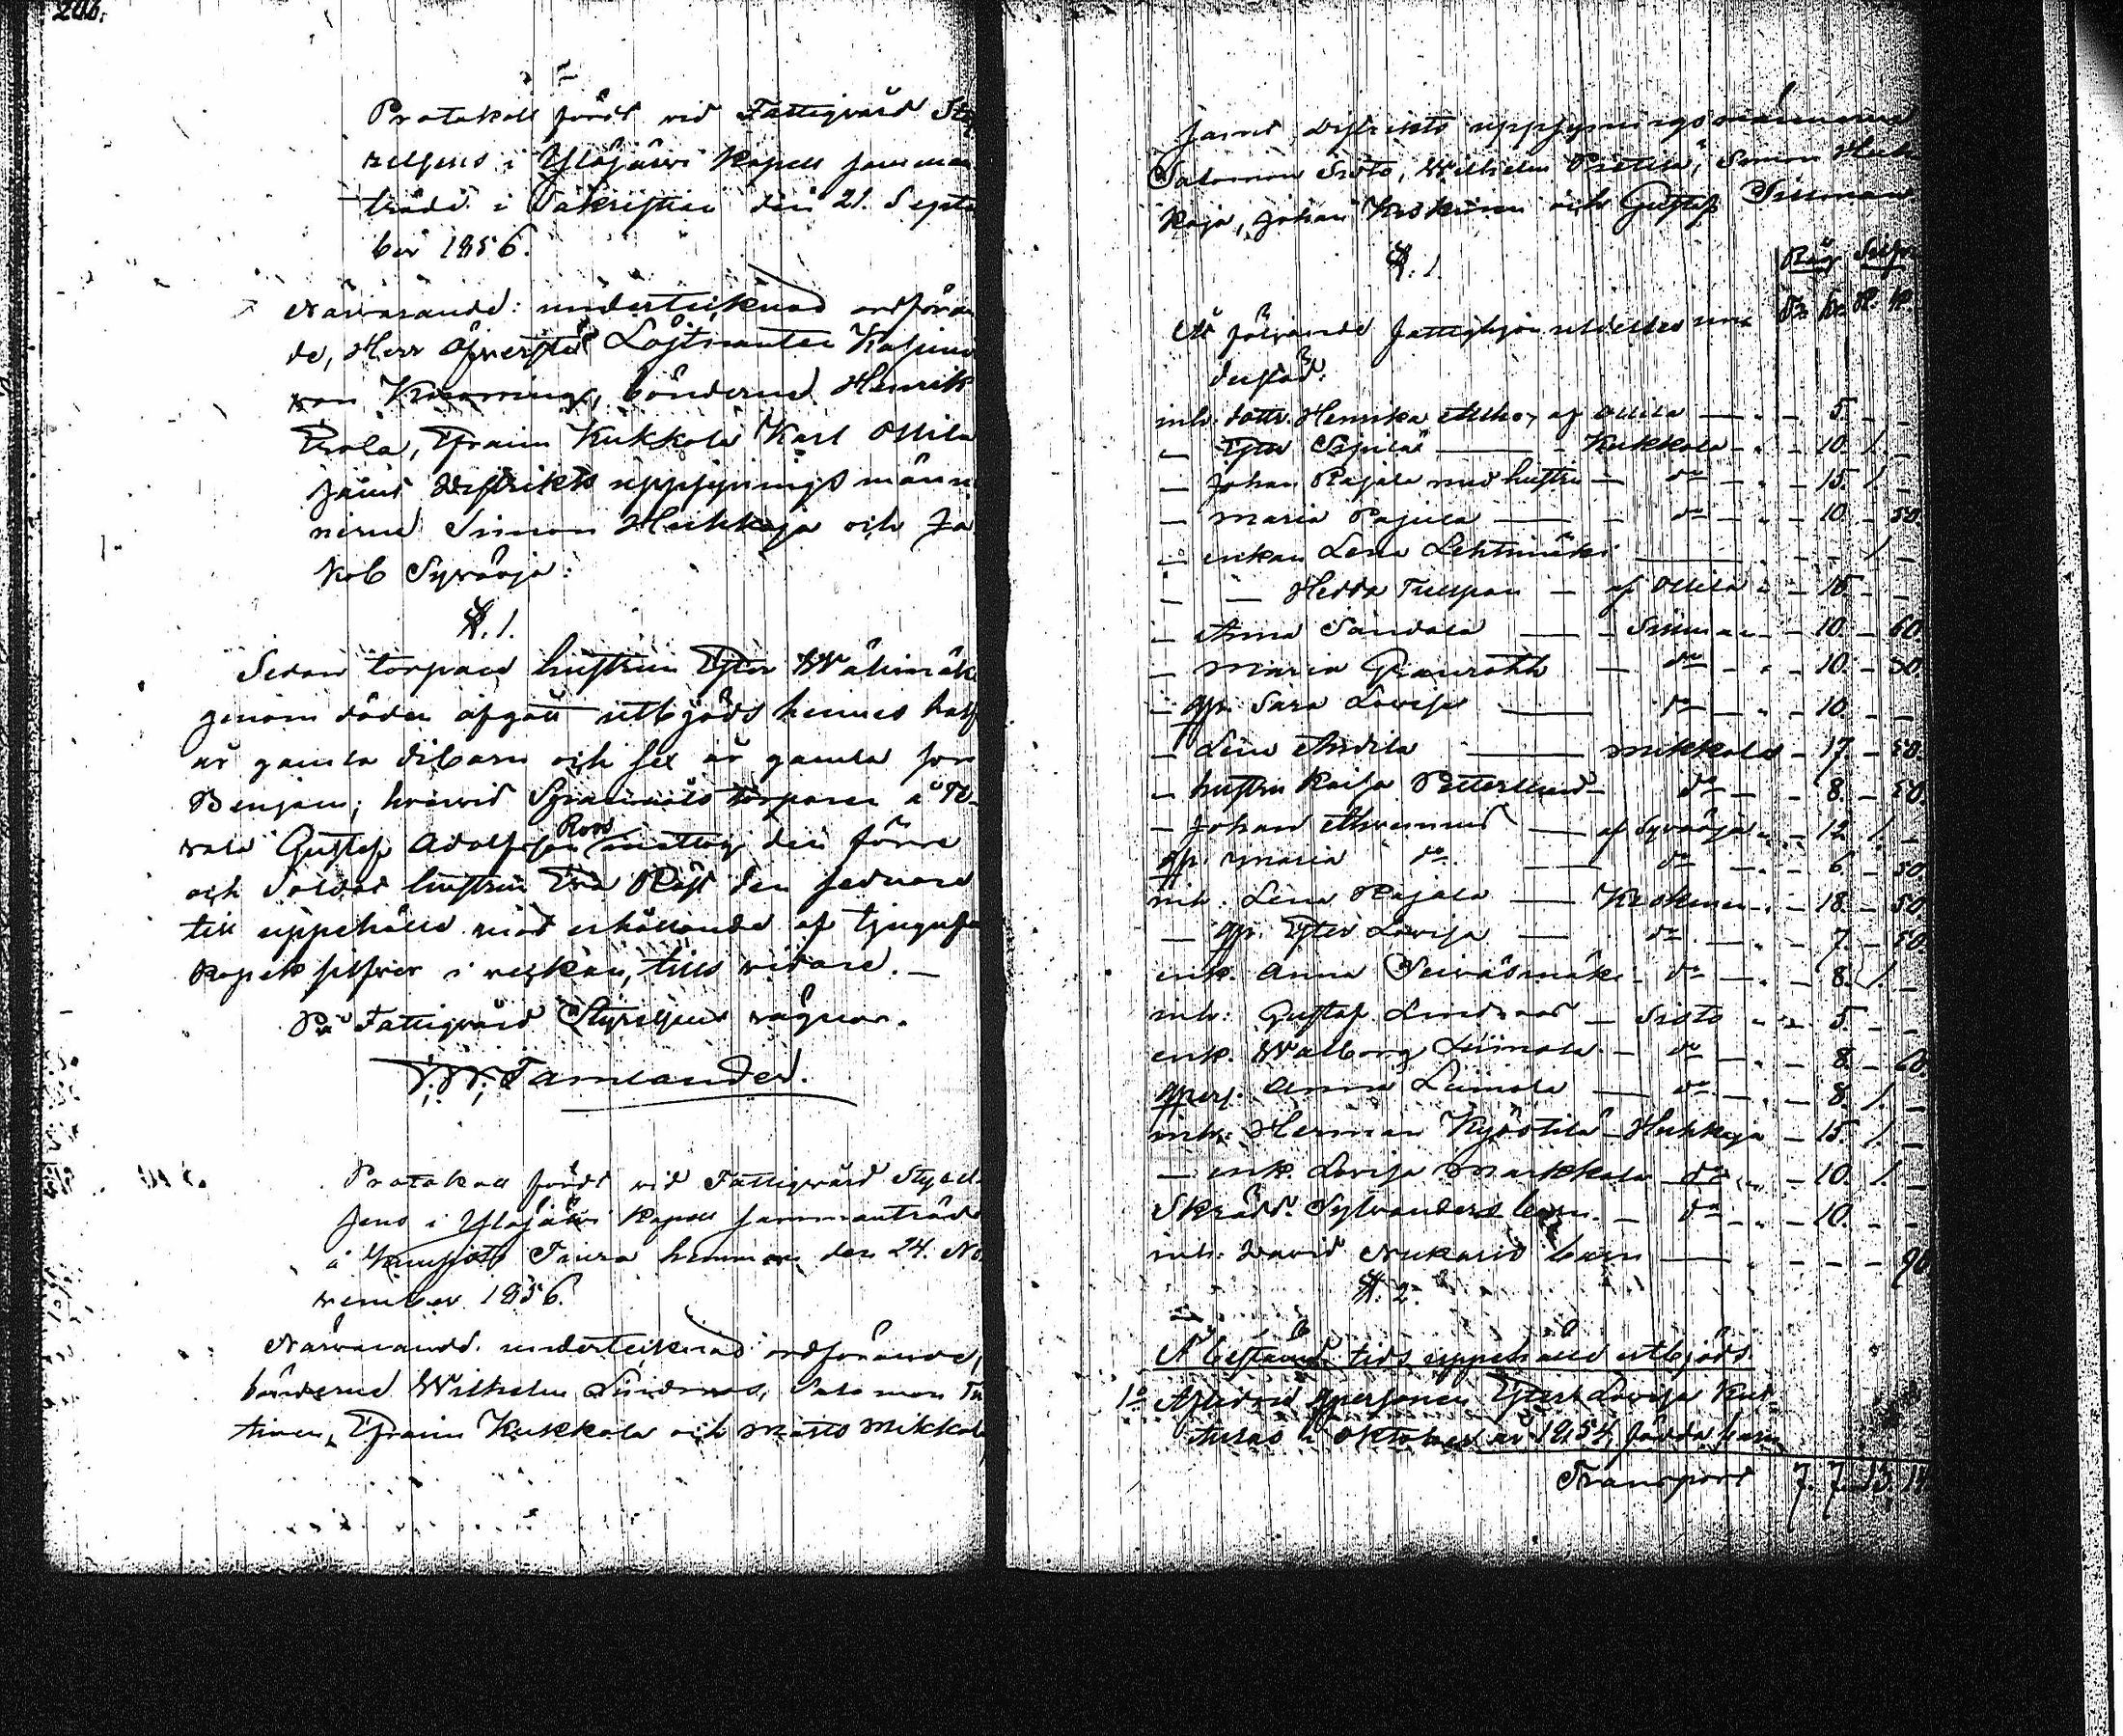 206.
Protokoll fördt vid Fattigvård Sty
relsens i Ylöjärvi Kapell samman
träde i Sakristian den 21. Septe
ber 1856.
Närvarande: undertecknad ordföran
de, Herr Öfverste Löjtnanten Kasimir
von Kræmring, bönderne Henrik
Erola, Efraim Kukkola Karl Ollila
jämte Distrikts uppsynings männ
nerne Simon Huhkaja och Ja
kob Sywäoja.
§. 1.
Sedan torpare hustrun Ester Wälimäk
genom döden afgått utbjöds hennes half
år gamla dibarn och sex år gamla son
Benjam; hvarvid torparen å
wala Gustaf Adolfsson Roos mottog den förre
och Soldat hustrun Eva Räst den sednare
till uppehälle med erhållande af tjugufem
kopek silfver i veckan, tills vidare.
På Fattigvård Styrelsens vägnar.
Tamlander.
Protokoll fördt vid Fattigvård Styrel
sens i Ylöjärvi Kapell sammanträde
å Tiura hemman den 24. No
vember 1856.
Närvarande: undertecknad ordförande,
bönderne Wilhelm Lindroos, Salomon Tu
tinen, Efraim Kukkola och Matts Mikkola
jämte Distrikts uppsyningsmännerna
Salomon Sioto, Wilhelm Pietilä, Simon Huh
kaja, Johan Keskinen och Gustaf Sillman
§. 1.
Råg Silfr.
Åt följande fattighjon utdeltes un-
derstöd: Tr. Kr. R. K.
inh. dott. Henrika Alho, af Ollila — 5. —
— Ester Sepilä — Kukkola — 10. 1. —
— Johan Rajala med hustru — do — 15. 1. —
— Maria Pajula — do — 10 — 50.
— enkan Lena Lehtimäki — 1. —
— Hedda Tulpan — af Ollila — 15 —
— Anna Sandala — Sillman — 10 — 60.
— Maria Granroth — do — 10. — 50.
— qp. Sara Lovisa — do — 10. —
— Lena Andila — Mikkola — 17. — 50.
— hustru Kaisa Petterlund — do — 8. — 50.
— Johan — af Sywäoja — 12. 1. —
qp. Maria do — do — 6. — 50.
inh. Lena Rajala — Keskinen — 18. — 50.
— qp. Ester Lovisa — do — 7. — 50.
enk. Anna Seiväsmäki — do — 8. 1. —
inh. Gustaf Lindroos — Sioto — 5. —
enk. Walborg Liimola — do — 8. — 60.
qpers. Anna Liimola — do — 8. 1. —
inh. Herman Kyöstilä — Huhkaja — 15. 1. —
— enk. Lovisa Markkola — do — 10. 1. —
Skrädd. Sylvanders barn. — do — 10. —
inh. David barn — 90
§. 2.
Å bestämd tids uppehälle utbjöds
1o Aflidne qpersonen Esters Lovisa
i Oktober år 1854, födda barn
Transport 7. 7. 13. 10